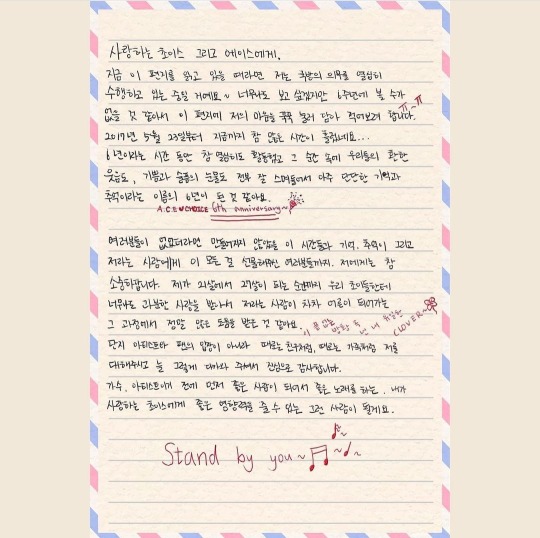 사랑하는 초이스 그리고 에이스에게.
지금 이 편지를 읽고 있을 때라면 저는 국방의 의무를 열심히
수행하고 있는 중일 거예요~ 너무나도 보고 싶겠지만 6주년에 볼 수가
없을 것 같아서 이 편지에 저의 마음을 꾹꾹 눌러 담아 적어보려 합니다. ㅠ~ㅠ
2017년 5월 23일부터 지금까지 참 많은 시간이 흘렀네요...
6년이라는 시간 동안 참 열심히도 활동했고 그 순간 속에 우리들의 환한
웃음도, 기쁨과 슬픔의 눈물도 전부 잘 스며들어서 아주 단단한 기억과
추억이라는 이름의 6년이 된 것 같아요.
A.C.E ♥ CHOICE 6th anniversary~
여러분들이 없었더라면 만들어지지 않았을 이 시간들과 기억, 추억이 그리고
저라는 사람에게 이 모든 걸 선물해주신 여러분들까지. 저에게는 참
소중합니다. 제가 21살에서 27살이 되는 순간까지 우리 초이들한테
너무나도 과분한 사랑을 받아서 저라는 사람이 차차 어른이 되어가는
그 과정에서 정말 많은 도움을 받은 것 같아요.
CLOVER~
단지 아티스트와 팬의 입장이 아니라 때로는 친구처럼, 때로는 가족처럼 저를
대해주시고 늘 그렇게 다가와 주셔서 진심으로 감사합니다.
가수, 아티스트이기 전에 먼저 좋은 사람이 되어서 좋은 노래를 하는, 내가
사랑하는 초이스에게 좋은 영향력을 줄 수 있는 그런 사람이 될게요.
Stand by you~